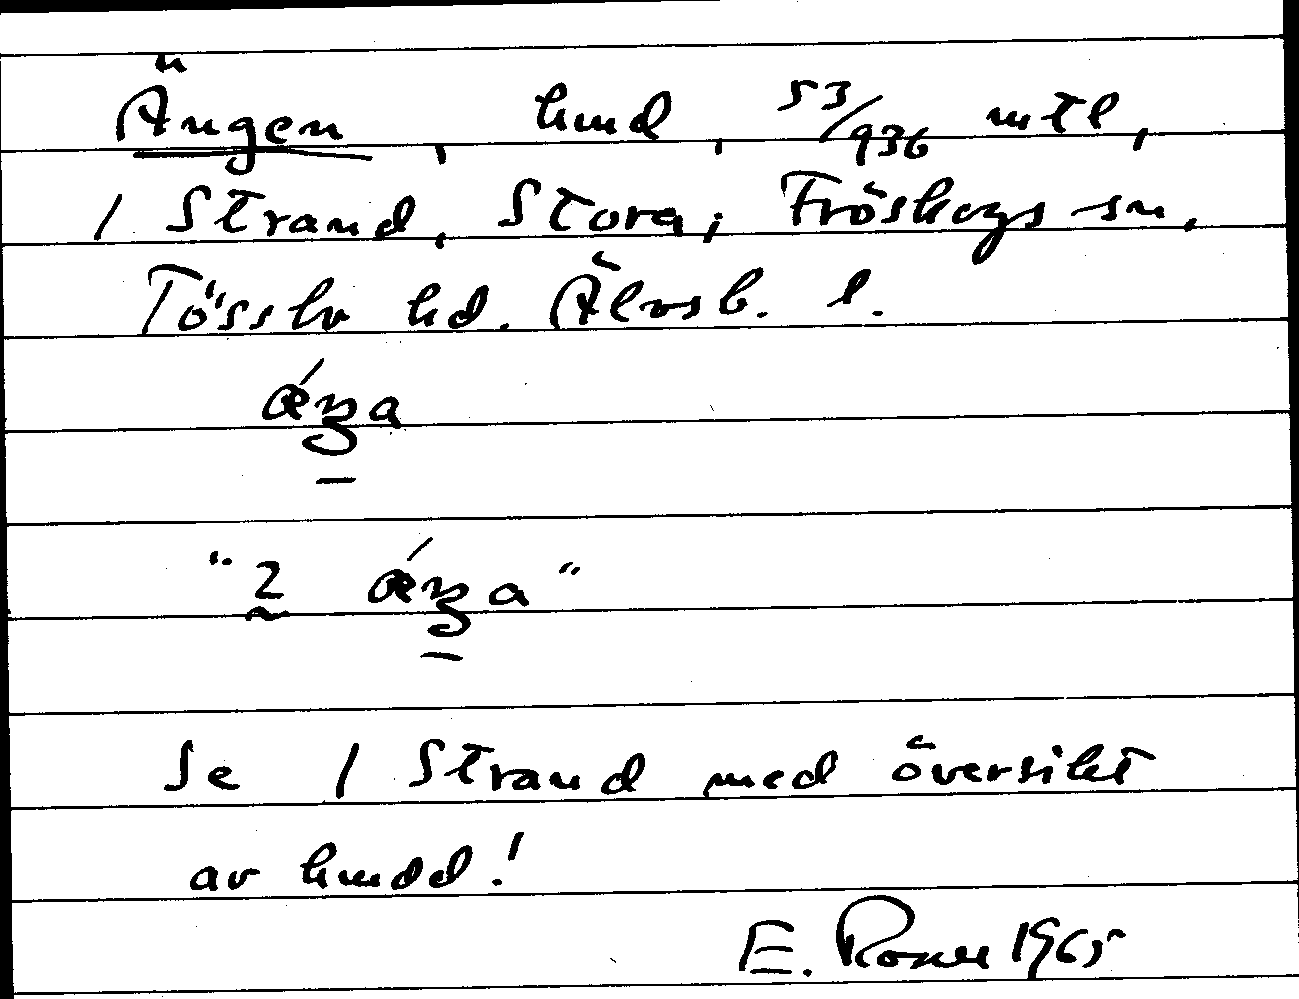 Ängen, hmd, 53/936 mtl,
1 Strand, Stora, Fröskogs sn,
Tössbo hd. Älvsb. l.
æ´ŋa
"2 æ´ŋa"
Se 1 Strand med översikt
av hmdd!
E. Rosell 1965